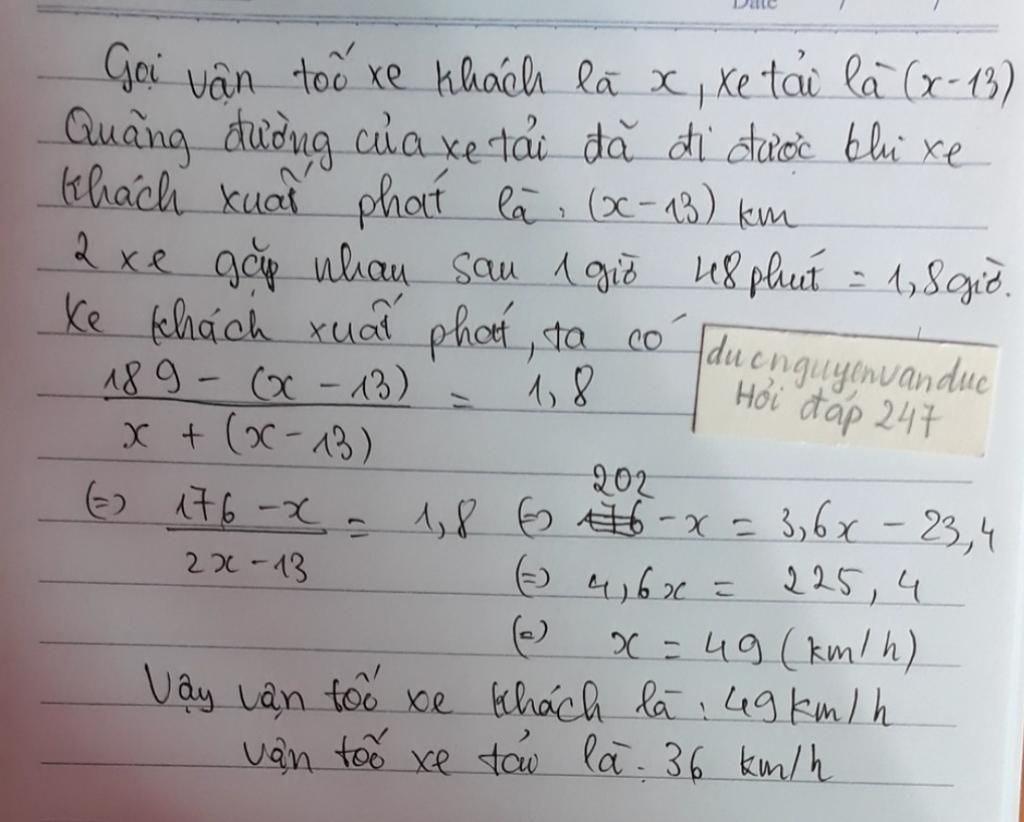 Date / /
Gọi vận tốc xe khách là x, xe tải là (x-13)
Quãng đường của xe tải đã đi được khi xe
khách xuất phát là: (x-13) km
2 xe gặp nhau sau 1 giờ 48 phút = 1,8 giờ.
Xe khách xuất phát, ta có
189 - (x - 13) / x + (x - 13) = 1,8
ducnguyenvanduc
Hỏi đáp 247
(=) 176 - x / 2x - 13 = 1,8 (=) 202 - x = 3,6x - 23,4
(=) 4,6x = 225,4
(=) x = 49 (km/h)
Vậy vận tốc xe khách là: 49 km/h
vận tốc xe tải là: 36 km/h